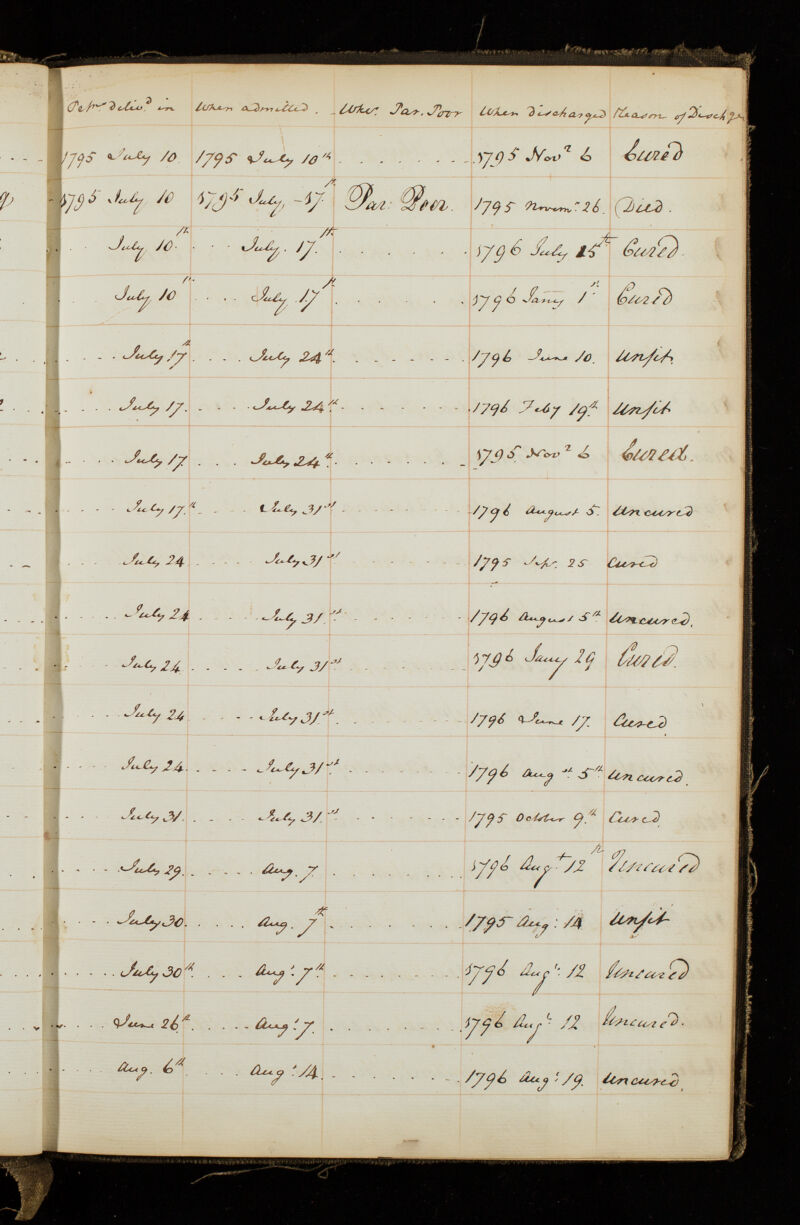 Petn. Deliv.d in When admitted. Whr. Par. Poor When discharged Reason of Dischge
1795 July 10 1795 July 10th 1795 Novr 6 Cured
1795 July 10 1795 July 17th Par: Poor. 1795 Novem: 26. Died.
July 10th July. 17th 1796 July 15th Cured.
July 10th July 17th 1796 Janry 1st Cured
July 17th July 24th 1796 June 10. Unfit.
July 17. July 24th 1796 Feby 19th Unfit
July 17 July 24th 1795 Novr 6 Cured.
July 17.th July 31st 1796 August 5. Uncured
July 24 July 31st 1795 Sepr. 25 Cured
July 24 July 31st 1796 August 5th Uncured.
July 24 July 31st 1796 Jany 29 Cured.
July 24 July 31st 1796 June 17. Cured.
July 24 July 31st 1796 Augst. 5th Uncured.
July 31. July 31st 1795 October 9.th Cured.
July 29. Aug. 7. 1796 Augt 12th Uncured
July 30. Aug. 7th 1795 Aug: 14 Unfit
July 30th Augt. 7th 1796 Augt: 12 Uncured
June 26th Augt. 7. 1796 Augt 12 Uncured.
Aug. 6th Augt. 14. 1796 Augt. 19. Uncured.